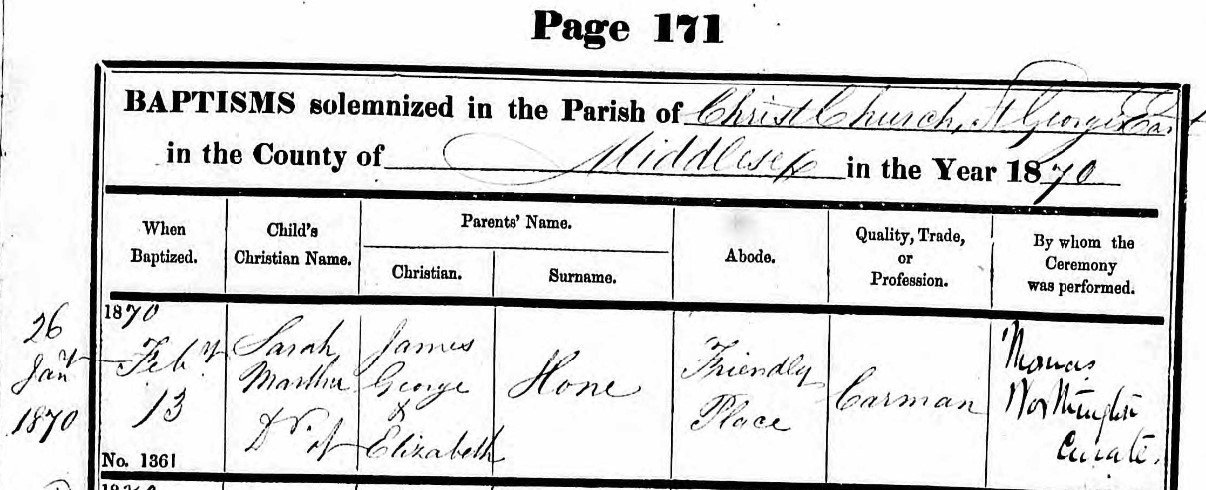 Page 171
BAPTISMS solemnized in the Parish of Christ Church, St George's East
in the County of Middlesex in the Year 1870
When Baptized.
Child's Christian Name.
Parents' Name.
Christian.
Surname.
Abode.
Quality, Trade, or Profession.
By whom the Ceremony was performed.
26
Jany
1870
1870
Feby
13
No. 1361
Sarah
Martha
Dr. of
James
George
&
Elizabeth
Hone
Friendly
Place
Carman
Thomas
Worthington
Curate.